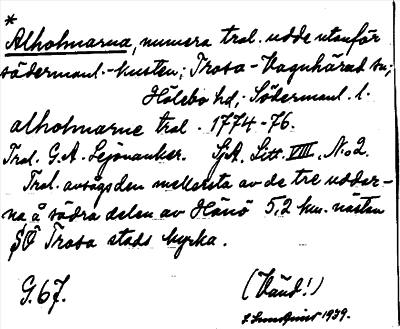 *
Alholmarna, numera tral. udde utanför
södermanl.-kusten; Trosa-Vagnhärad sn;
Hölebo hd; Södermanl. l.
alholmarne tral. 1774-76.
Tral. G.A. Lejonanker. SjA. Litt. VIII. No 2.
Tral. avsågs den mellersta av de tre uddar-
na å södra delen av Hänö 5,2 km. nästan
SO Trosa stads kyrka.
G. 67. (Vänd!)
1939.